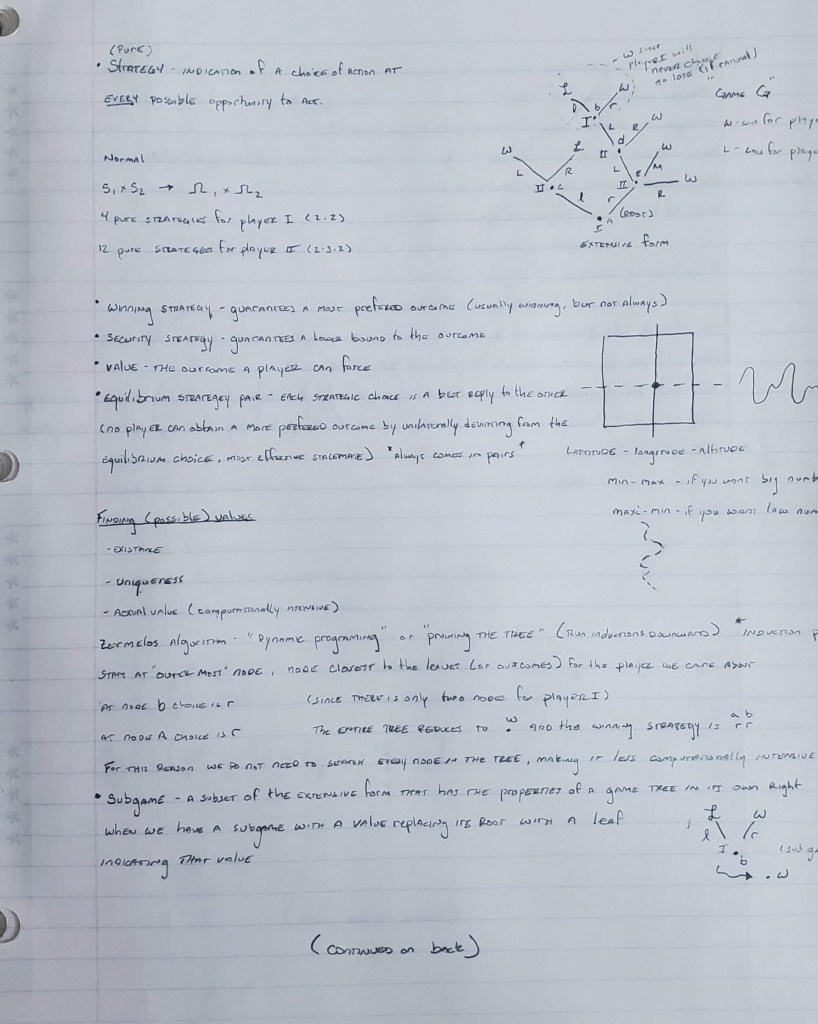 (PURE)
• STRATEGY - INDICATION of A choice of ACTION AT
EVERY possible opportunity to Act.
Normal
S₁ x S₂ → Ω₁ x Ω₂
4 pure STRATEGIES for player I (2·2)
12 pure STRATEGIES for player II (2·3·2)
- W since
player I will
never change
to lose (if rational)
"GAME G"
W - win for
L - Loss for
L W
l b r
I
L R W
d
II
W L W
L R L M W
II c II e R
l r
A (ROOT)
I
EXTENSIVE form
• WINNING STRATEGY - guarantees A most preferred outcome (usually winning, but not always)
• SECURITY STRATEGY - guarantees A lower bound to the outcome
• VALUE - THE OUTCOME A player can force
• Equilibrium STRATEGEY pair - EACH STRATEGIC choice is A best reply to the other
(no player can obtain A more preferred outcome by unilaterally deviating from the
equilibrium choice, most effective stalemate) *Always comes in pairs*
LATITUDE - longitude - Altitude
min-max - if you want big
maxi-min - if you want low
FINDING (possible) values
- EXISTANCE
- uniqueness
- Actual value (computationally intensive)
Zermelos Algorithm - "Dynamic programing" or "PRUINING THE TREE" (Run inductions Downward) *INDUCTION
START AT "OUTER MOST" NODE, NODE closest to the leaves (or outcomes) for the player we care About
AT node b choice is r (SINCE THERE is only two nodes for player I)
AT node A choice is r The ENTIRE TREE REDUCES to W. AND the winning STRATEGY is a b
r r
For THIS REASON we Do NOT NEED to SEARCH EVERY NODE IN THE TREE, making it less computationally INTENSIVE
• Subgame - A subset of the EXTENSIVE form THAT HAS THE properties of A game TREE IN ITS own Right
when we have A subgame with A value replacing its Root with A leaf
indicating that value
L W
l r
I b
→ . W
(continued on back)